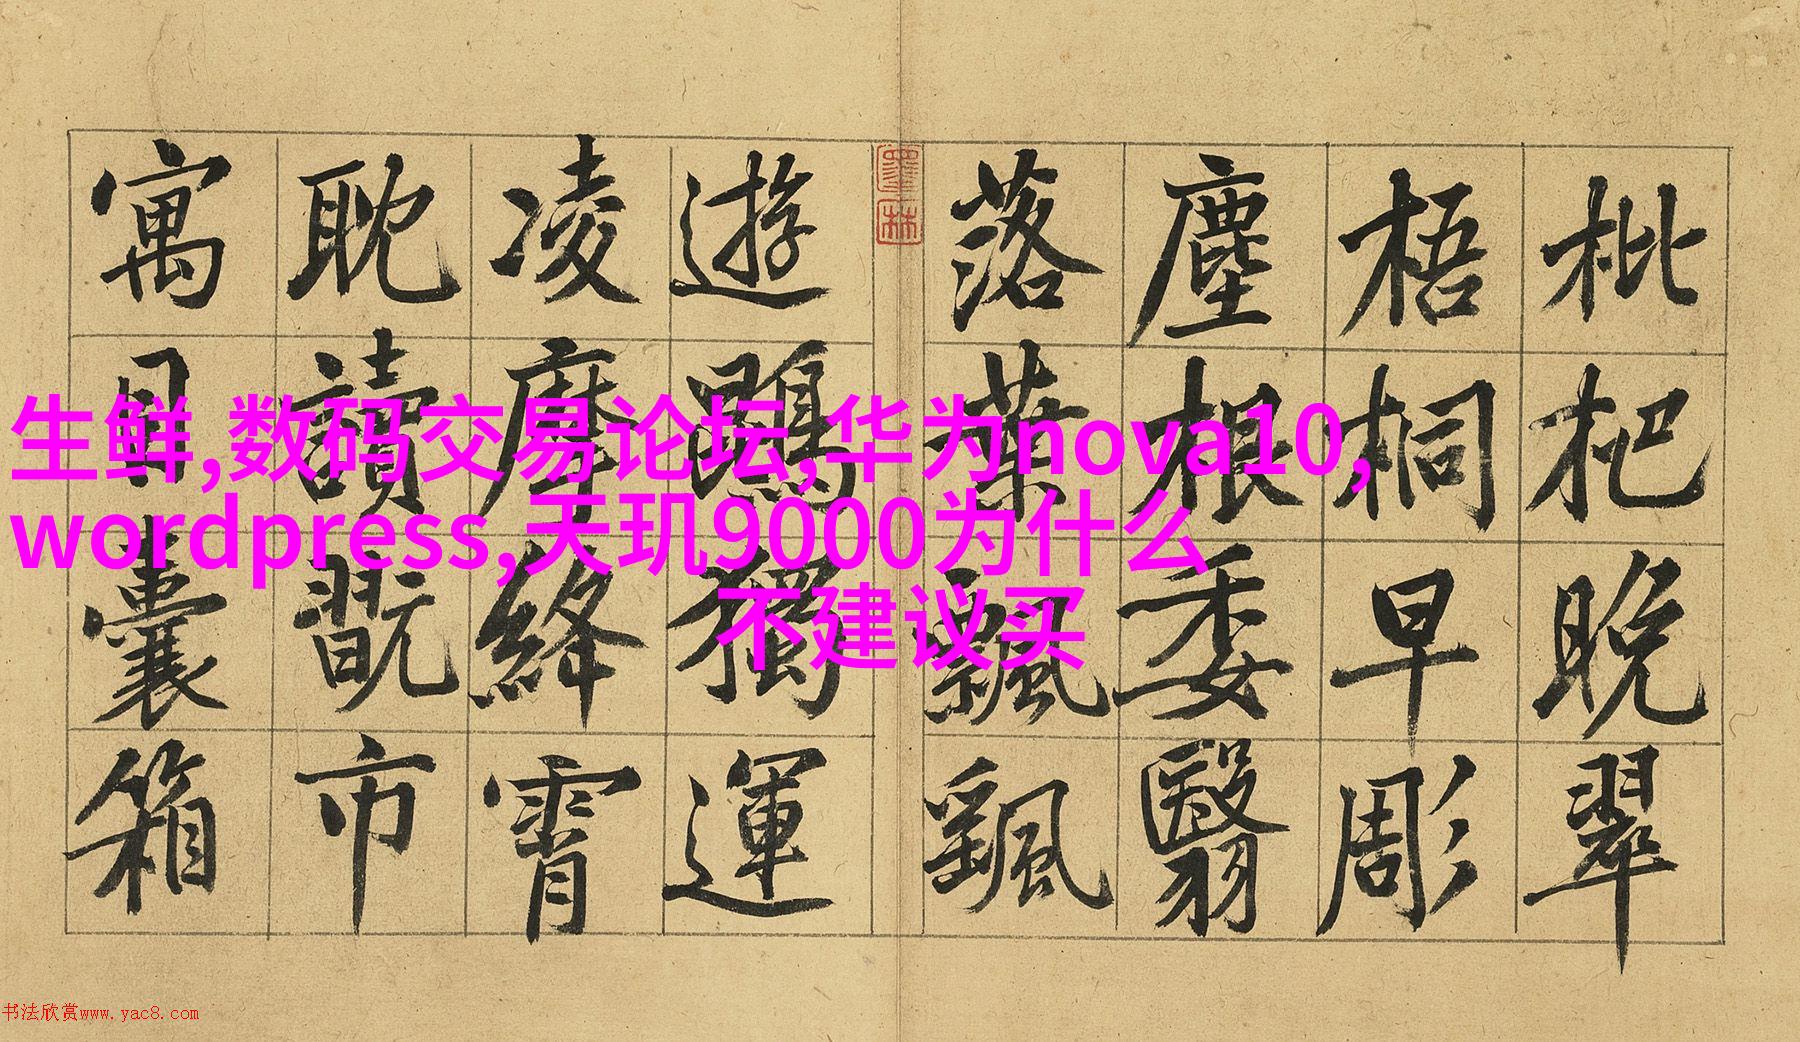 枇杷晚翠
梧桐早彫
塵根委翳
落葉飄颻
墨林
遊鵾獨運
凌摩絳霄
耽讀翫市
寓目囊箱
生鲜,数码交易论坛,华为nova10,
wordpress,天玑9000为什么
不建议买
书法欣赏www.yac8.com